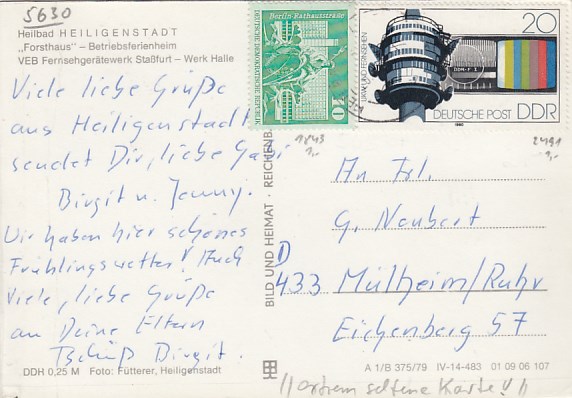 5630
Heilbad HEILIGENSTADT
„Forsthaus" – Betriebsferienheim
VEB Fernsehgerätewerk Staßfurt – Werk Halle
Viele liebe Grüße
aus Heiligenstadt
sendet Dir, liebe Gabi
Birgit u. Jenny.
Wir haben hier schönes
Frühlingswetter! Auch
viele, liebe Grüße
an Deine Eltern
Tschüß Birgit.
DDR 0,25 M Foto: Fütterer, Heiligenstadt
BILD UND HEIMAT · REICHENB.
Berlin-Rathausstraße
DEUTSCHE DEMOKRATISCHE REPUBLIK
10
20
DEUTSCHE POST DDR
1980
1843
1,-
2491
An Frl.
G. Neubert
D
433 Mülheim/Ruhr
Eichenberg 57
A 1/B 375/79 IV-14-483 01 09 06 107
//extrem seltene Karte!!//